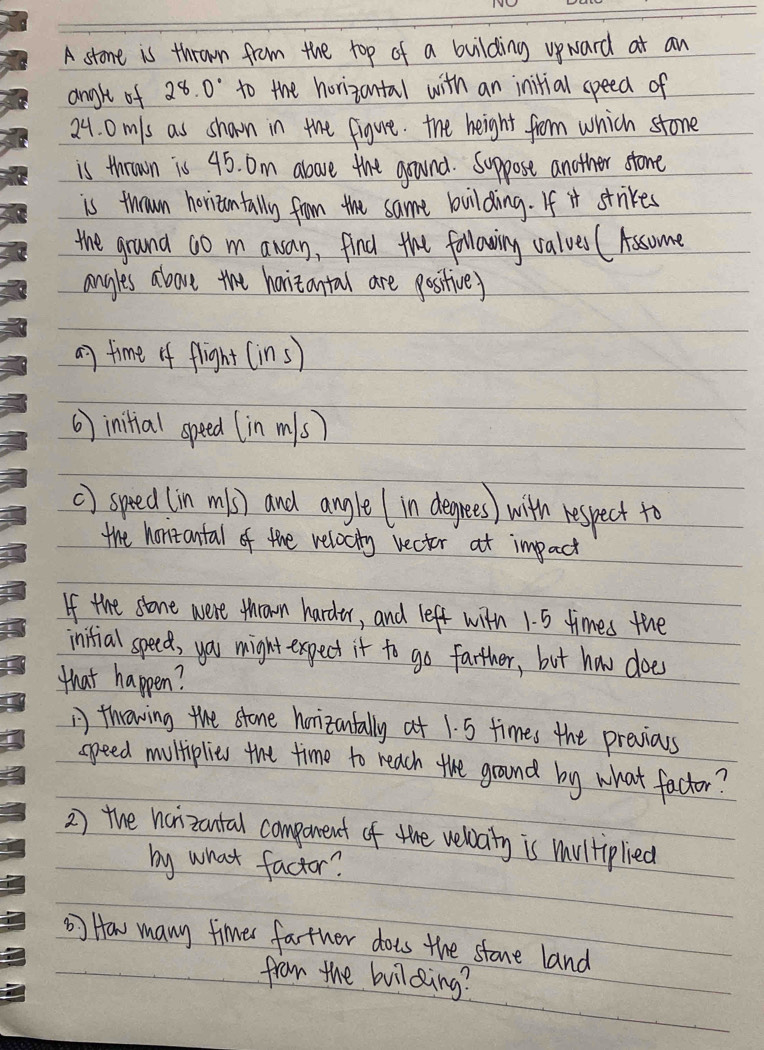 NO Date
A stone is thrown from the top of a building upward at an
angle of 28.0° to the horizontal with an initial speed of
24.0 m/s as shown in the figure. The height from which stone
is thrown is 45.0m above the ground. Suppose another stone
is thrown horizontally from the same building. If it strikes
the ground 60 m away, find the following values (Assume
angles above the horizontal are positive)
a) time of flight (in s)
b) initial speed (in m/s)
c) speed (in m/s) and angle (in degrees) with respect to
the horizontal of the velocity vector at impact
If the stone were thrown harder, and left with 1.5 times the
initial speed, you might expect it to go farther, but how does
that happen?
1.) Throwing the stone horizontally at 1.5 times the previous
speed multiplies the time to reach the ground by what factor?
2) The horizontal component of the velocity is multiplied
by what factor?
3.) How many times farther does the stone land
from the building?